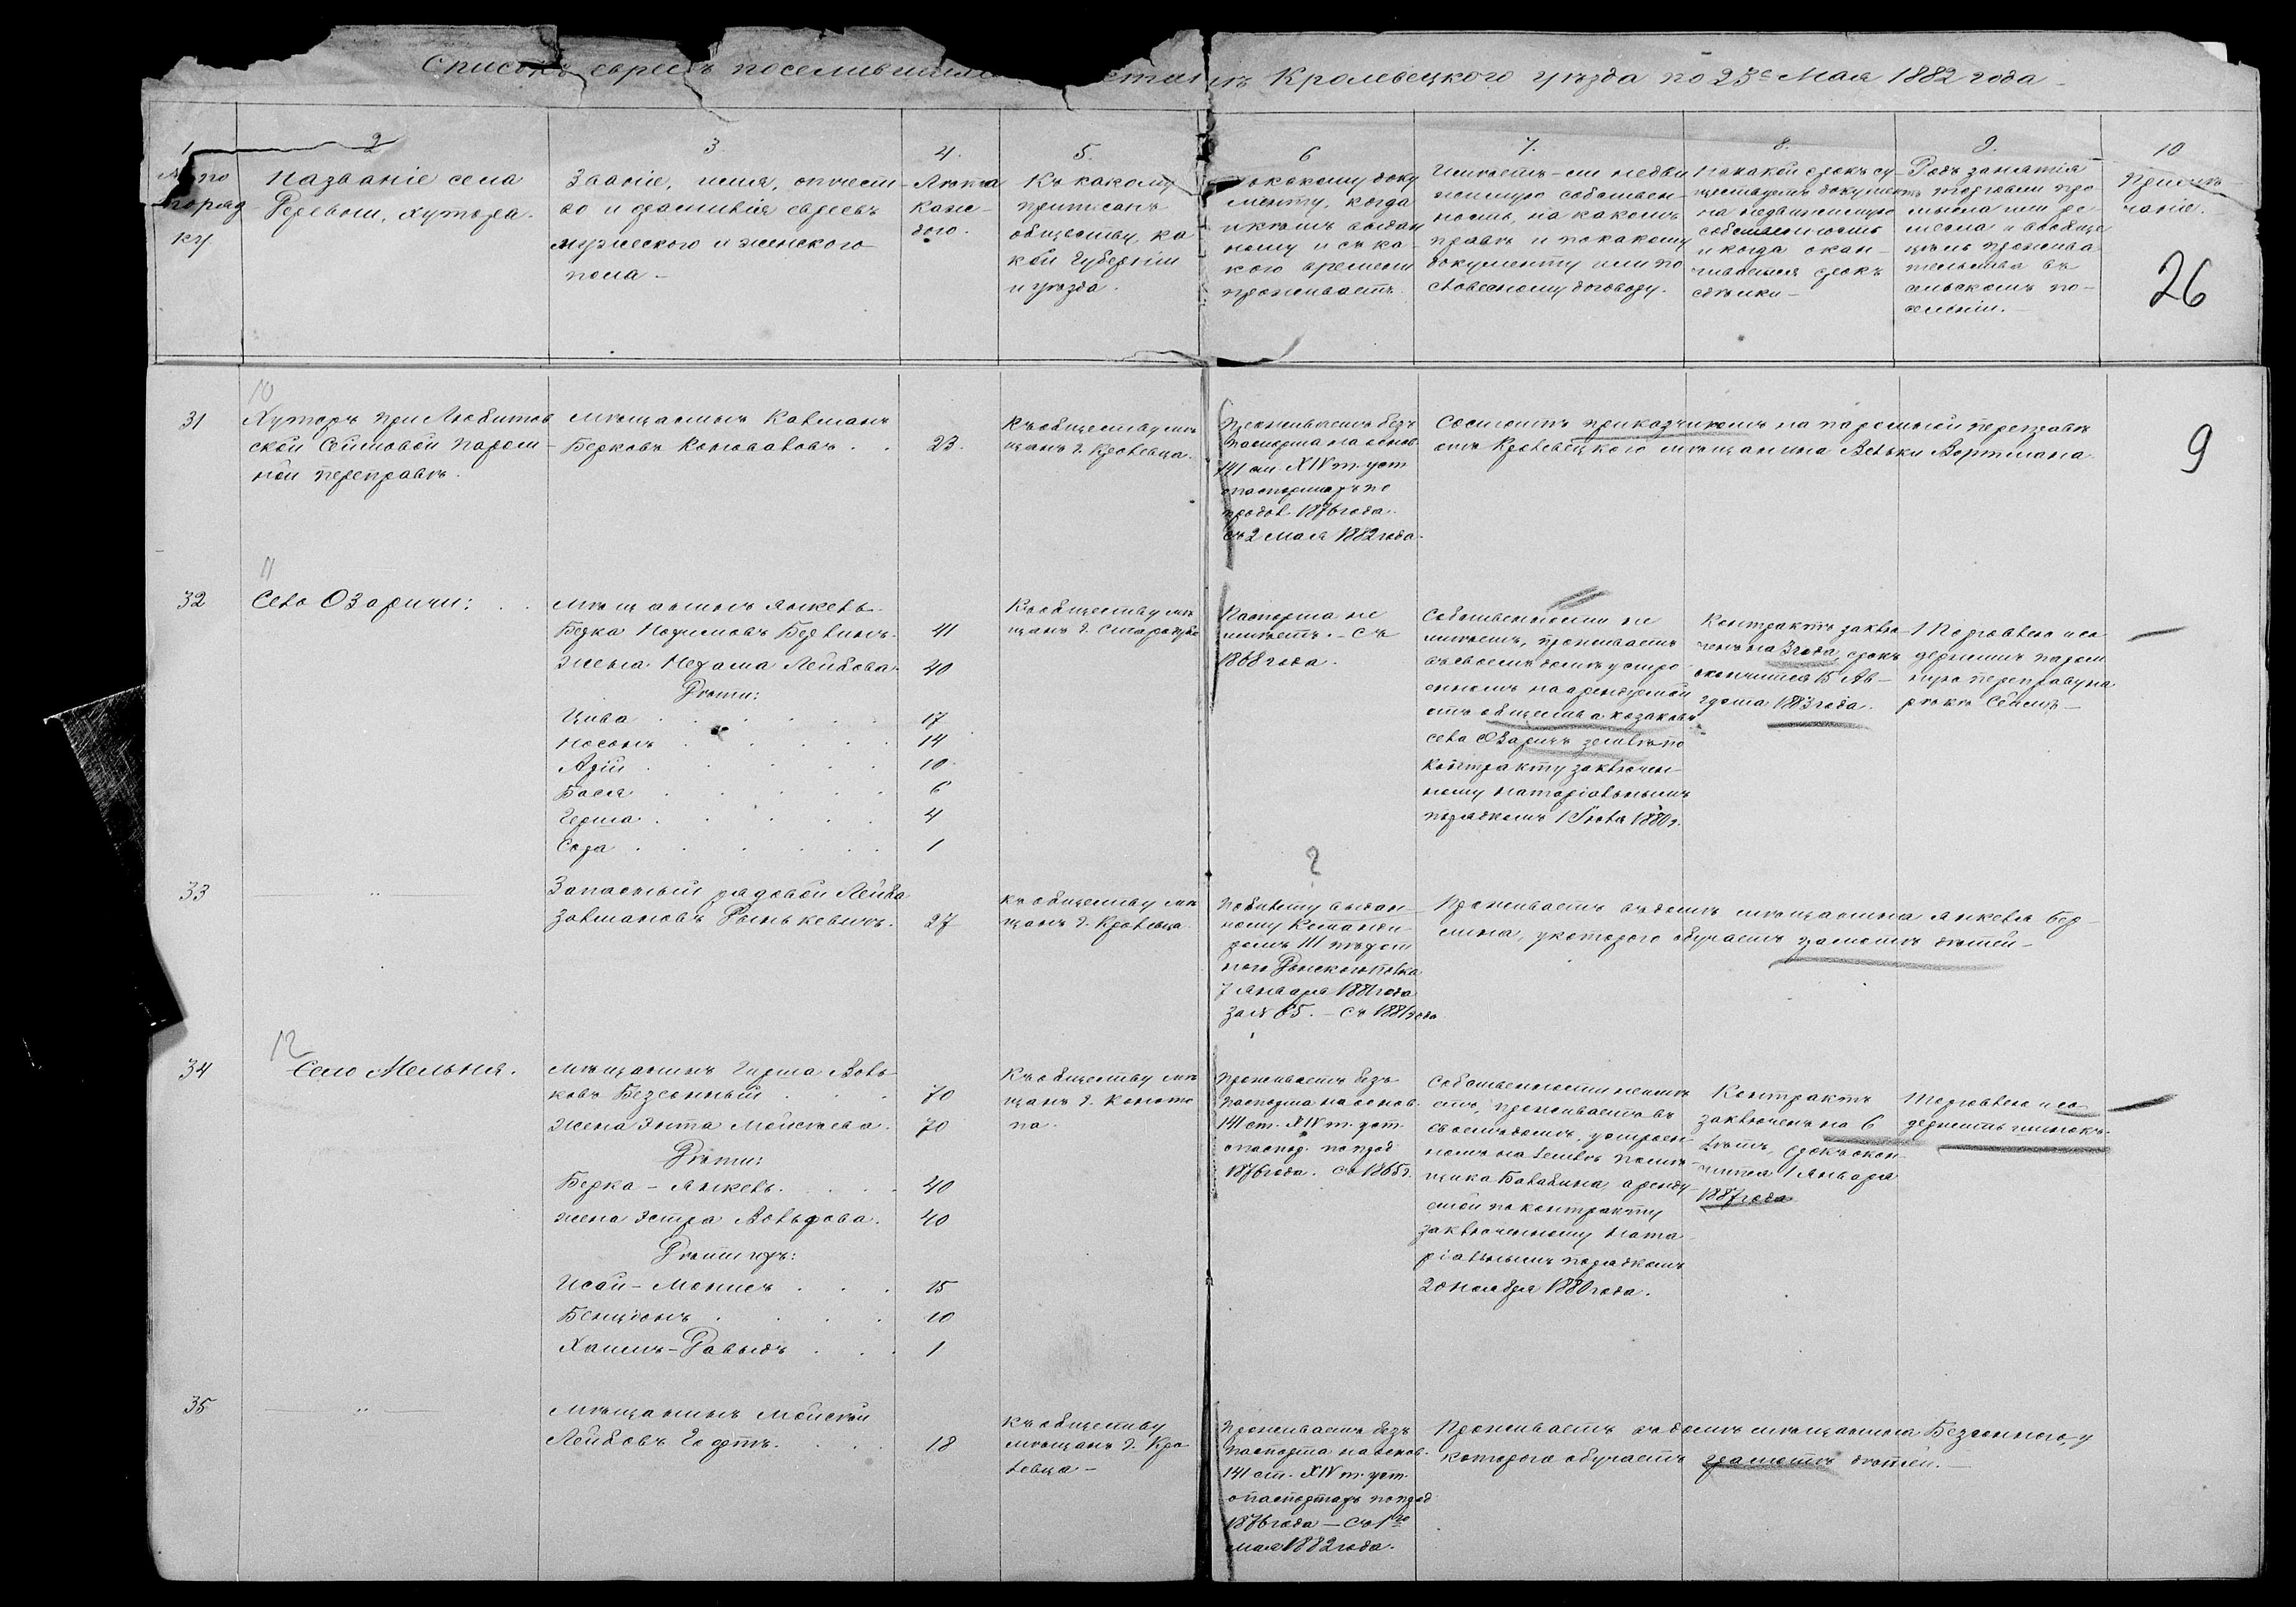 Списокъ евреевъ поселившихся
Кролевецкого уѣзда по 25е Мая 1882 года
1
2
3
4.
5.
6
7.
8.
9.
10
№ по
поряд
ку
Названіе села
Деревни, хутора.
Званіе, имя, отчест-
во и фамилія евреевъ
мужеского и женского
пола –
Лѣта
каж-
дого.
Къ какому
приписанъ
обществу, ка
кой Губерніи
и уѣзда.
По какому доку
менту, когда
и кѣмъ выдан
ному и съ ка-
кого времени
проживаетъ
Имѣетъ-ли недви
жимую собствен-
ность, на какомъ
правѣ и по какому
документу или по
словесному договору.
На какой срокъ су-
ществуетъ документъ
на недвижимую
собственность
и когда окан-
чивается срокъ
сдѣлки –
Родъ занятія
торговли про
мысла или ре-
месла и вообще
цѣль прожива
тельства въ
сельскомъ по-
селеніи. –
Примѣ-
чаніе.
26
10
31
Хуторъ при Любитов
ской Сеймовой паром-
ной переправѣ.
Мѣщанинъ Калманъ
Берковъ Коноваловъ . .
23.
Къ обществу мѣ
щанъ г. Кролевца.
Проживаетъ безъ
паспорта на основ.
141 ст. XIV т. уст
о паспортахъ по
продол. 1876 года.
съ 2 Мая 1882 года.
Состоитъ приказчикомъ на паромной переправѣ
отъ Кролевецкого мѣщанина Вельки Вортмана.
9
11
32
Село Озаричи:
Мѣщанинъ Янкель
Берка Нохимовъ Берлинъ.
41
Жена Нехама Лейбова.
40
Дѣти:
Цива
17
Носонъ
14
Арій
10
Бася
6
Герша
4
Сора
1
Къ обществу мѣ
щанъ г. Стародуба
Паспорта не
имѣетъ. – Съ
1868 года.
Собственности не
имѣетъ, проживаетъ
въ своемъ домѣ устро
енномъ на арендуемой
отъ общества козаковъ
села Озаричъ землѣ по
контракту заключен-
ному нотаріальнымъ
порядкомъ 1 Іюля 1880 г.
Контрактъ заклю-
ченъ на 3 года, срокъ
окончится 15 Ав-
густа 1883 года.
Торговлею и со
держитъ паром
ную переправу на
рѣкѣ Сеймъ –
33
"
Запасный рядовой Лейба
Залмановъ Рынькевичъ.
27
къ обществу мѣ
щанъ г. Кролевца
?
По билету выдан-
ному Команди-
ромъ III пѣхот
ного Донского полка
7 Января 1881 года
за № 65. – Съ 1881 года
Проживаетъ въ домѣ мѣщанина Янкеля Бер-
лина, у которого обучаетъ грамотѣ дѣтей –
12
34
Село Мельня.
Мѣщанинъ Гирша Вовь-
ковъ Безсонный
70
Жена Энта Моисѣева.
70
Дѣти:
Берка – Янкель.
40
жена Эстра Вольфова.
40
Дѣти ихъ:
Исай – Монисъ
15
Бенціонъ
10
Хаимъ – Давыдъ
1
Къ обществу мѣ
щанъ г. Коното
па.
Проживаетъ безъ
паспорта на основ.
141 ст. XIV т. уст.
о паспор. по прод
1876 года. Съ 1865 г.
Собственности не имѣ
етъ, проживаетъ въ
своемъ домѣ, устроен-
номъ на землѣ помѣ-
щика Балабина аренду-
емой по контракту
заключенному нота
ріальнымъ порядкомъ
20 Ноября 1880 года.
Контрактъ
заключенъ на 6
лѣтъ, срокъ окон
чится 1 Января
1887 года
Торговлею и со
держитъ шинокъ.
35
"
Мѣщанинъ Моисей
Лейбовъ Гофтъ.
18
Къ обществу
мѣщанъ г. Кро
левца –
Проживаетъ безъ
паспорта на основ.
141 ст. XIV т. уст.
о паспортахъ по прод
1876 года – Съ 1го
Мая 1882 года.
Проживаетъ въ домѣ мѣщанина Безсонного, у
которого обучаетъ грамотѣ дѣтей. –